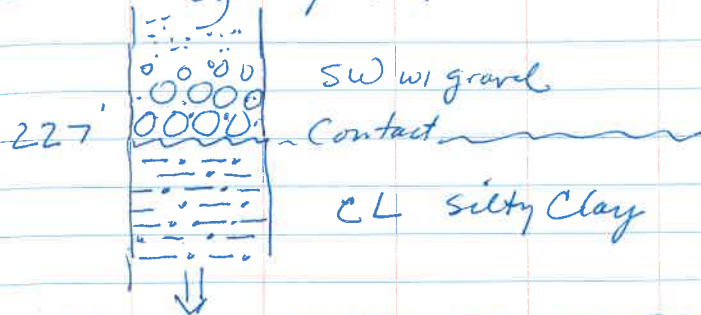 SW w/ gravel
227' Contact
CL silty Clay